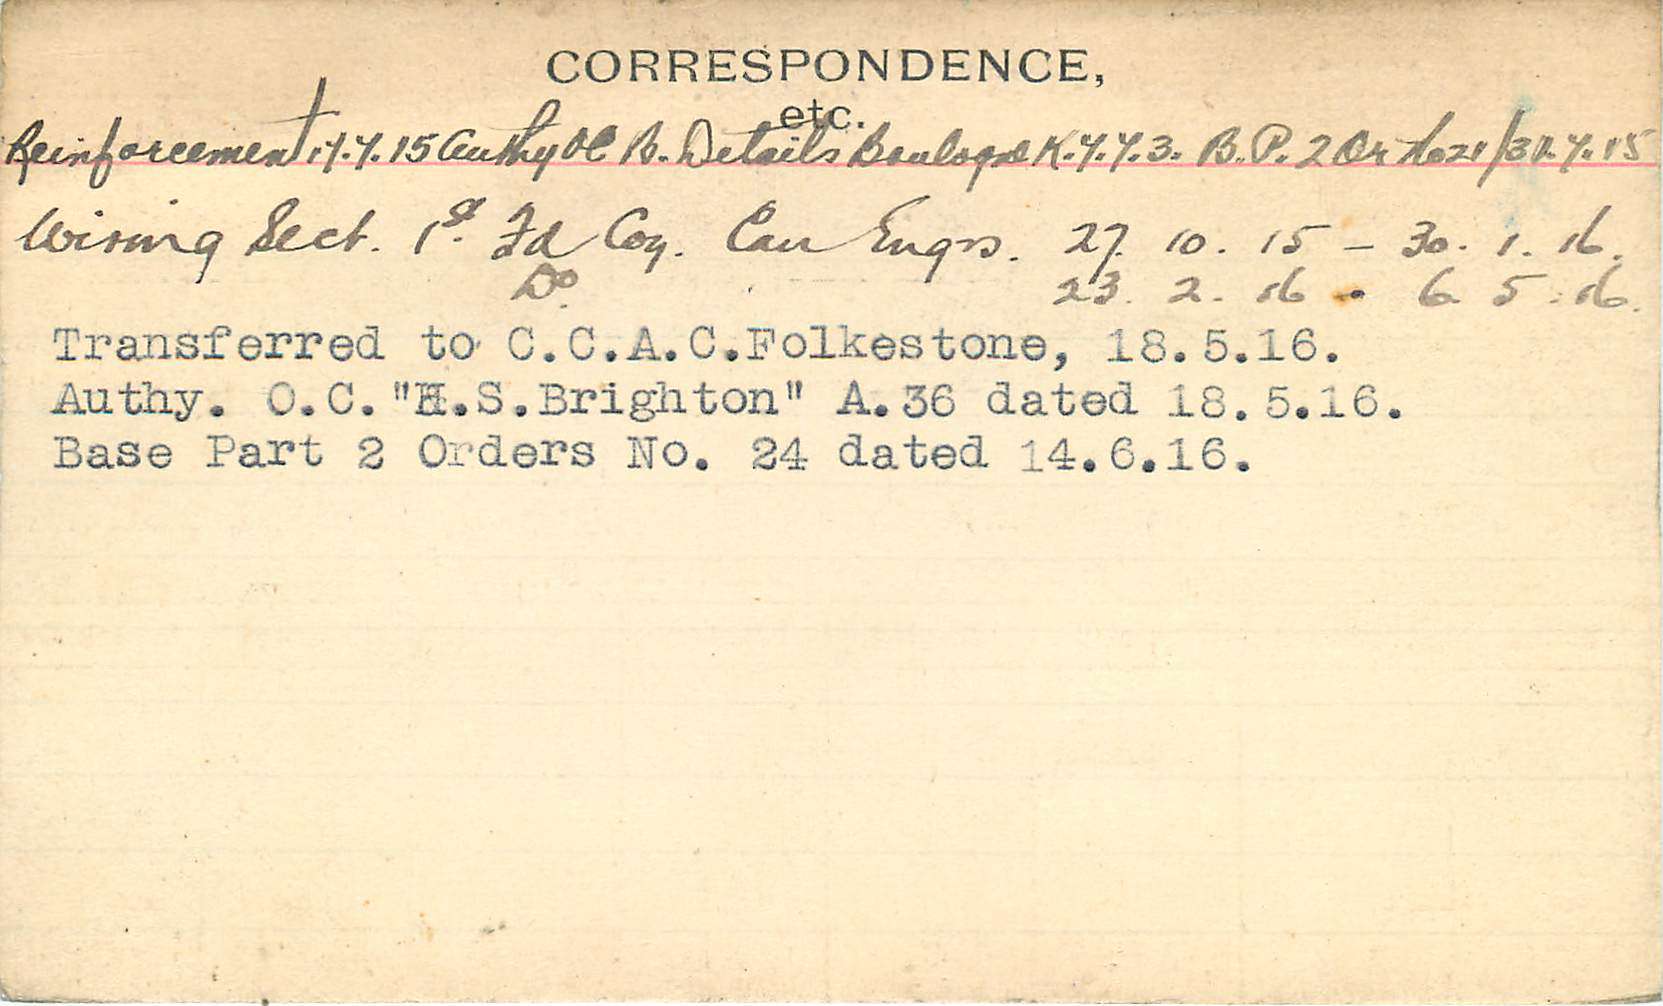 CORRESPONDENCE,
etc.
Reinforcement 17.7.15 Authy OC B. Details Boulogne K.7.7.3. B.P. 2 Or No 21/31.7.15
Wiring Sect. 1st Fd Coy. Can Engrs. 27. 10. 15 - 30. 1. 16.
Do. 23. 2. 16 - 6. 5. 16.
Transferred to C.C.A.C.Folkestone, 18.5.16.
Authy. O.C."H.S.Brighton" A.36 dated 18.5.16.
Base Part 2 Orders No. 24 dated 14.6.16.